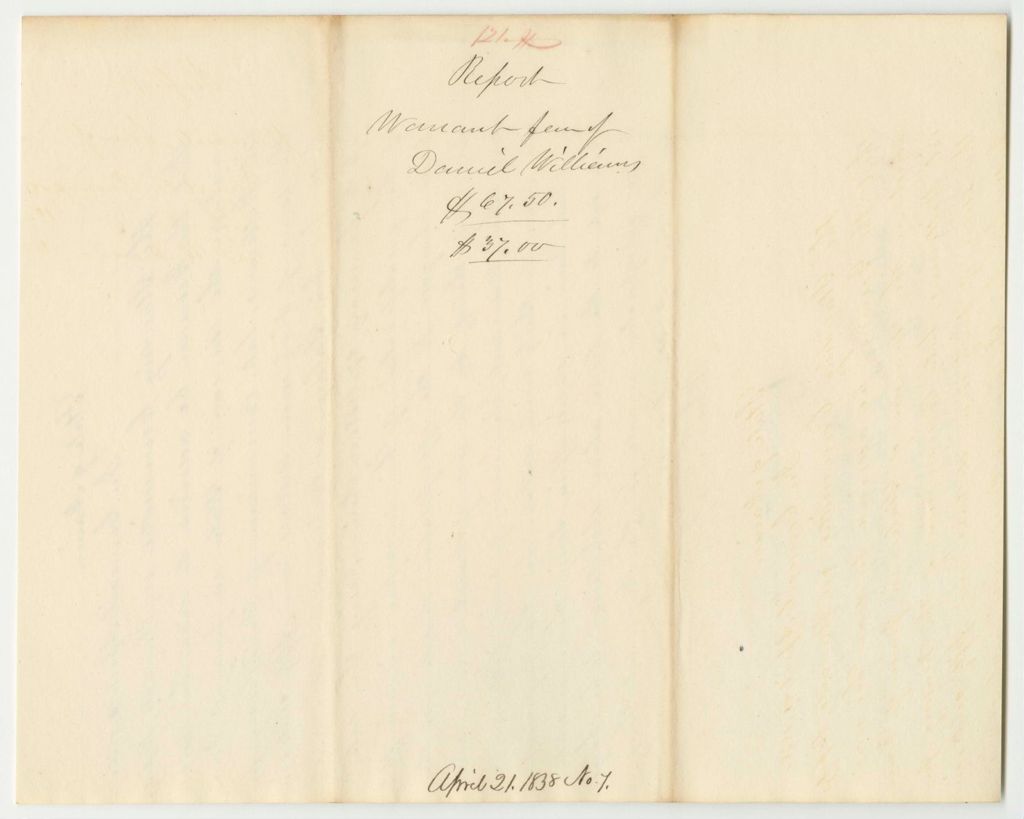 121.
Report
Warrant fav of
Daniel Williams
$ 67.50.
$ 37.00
April 21. 1838 No. 7.